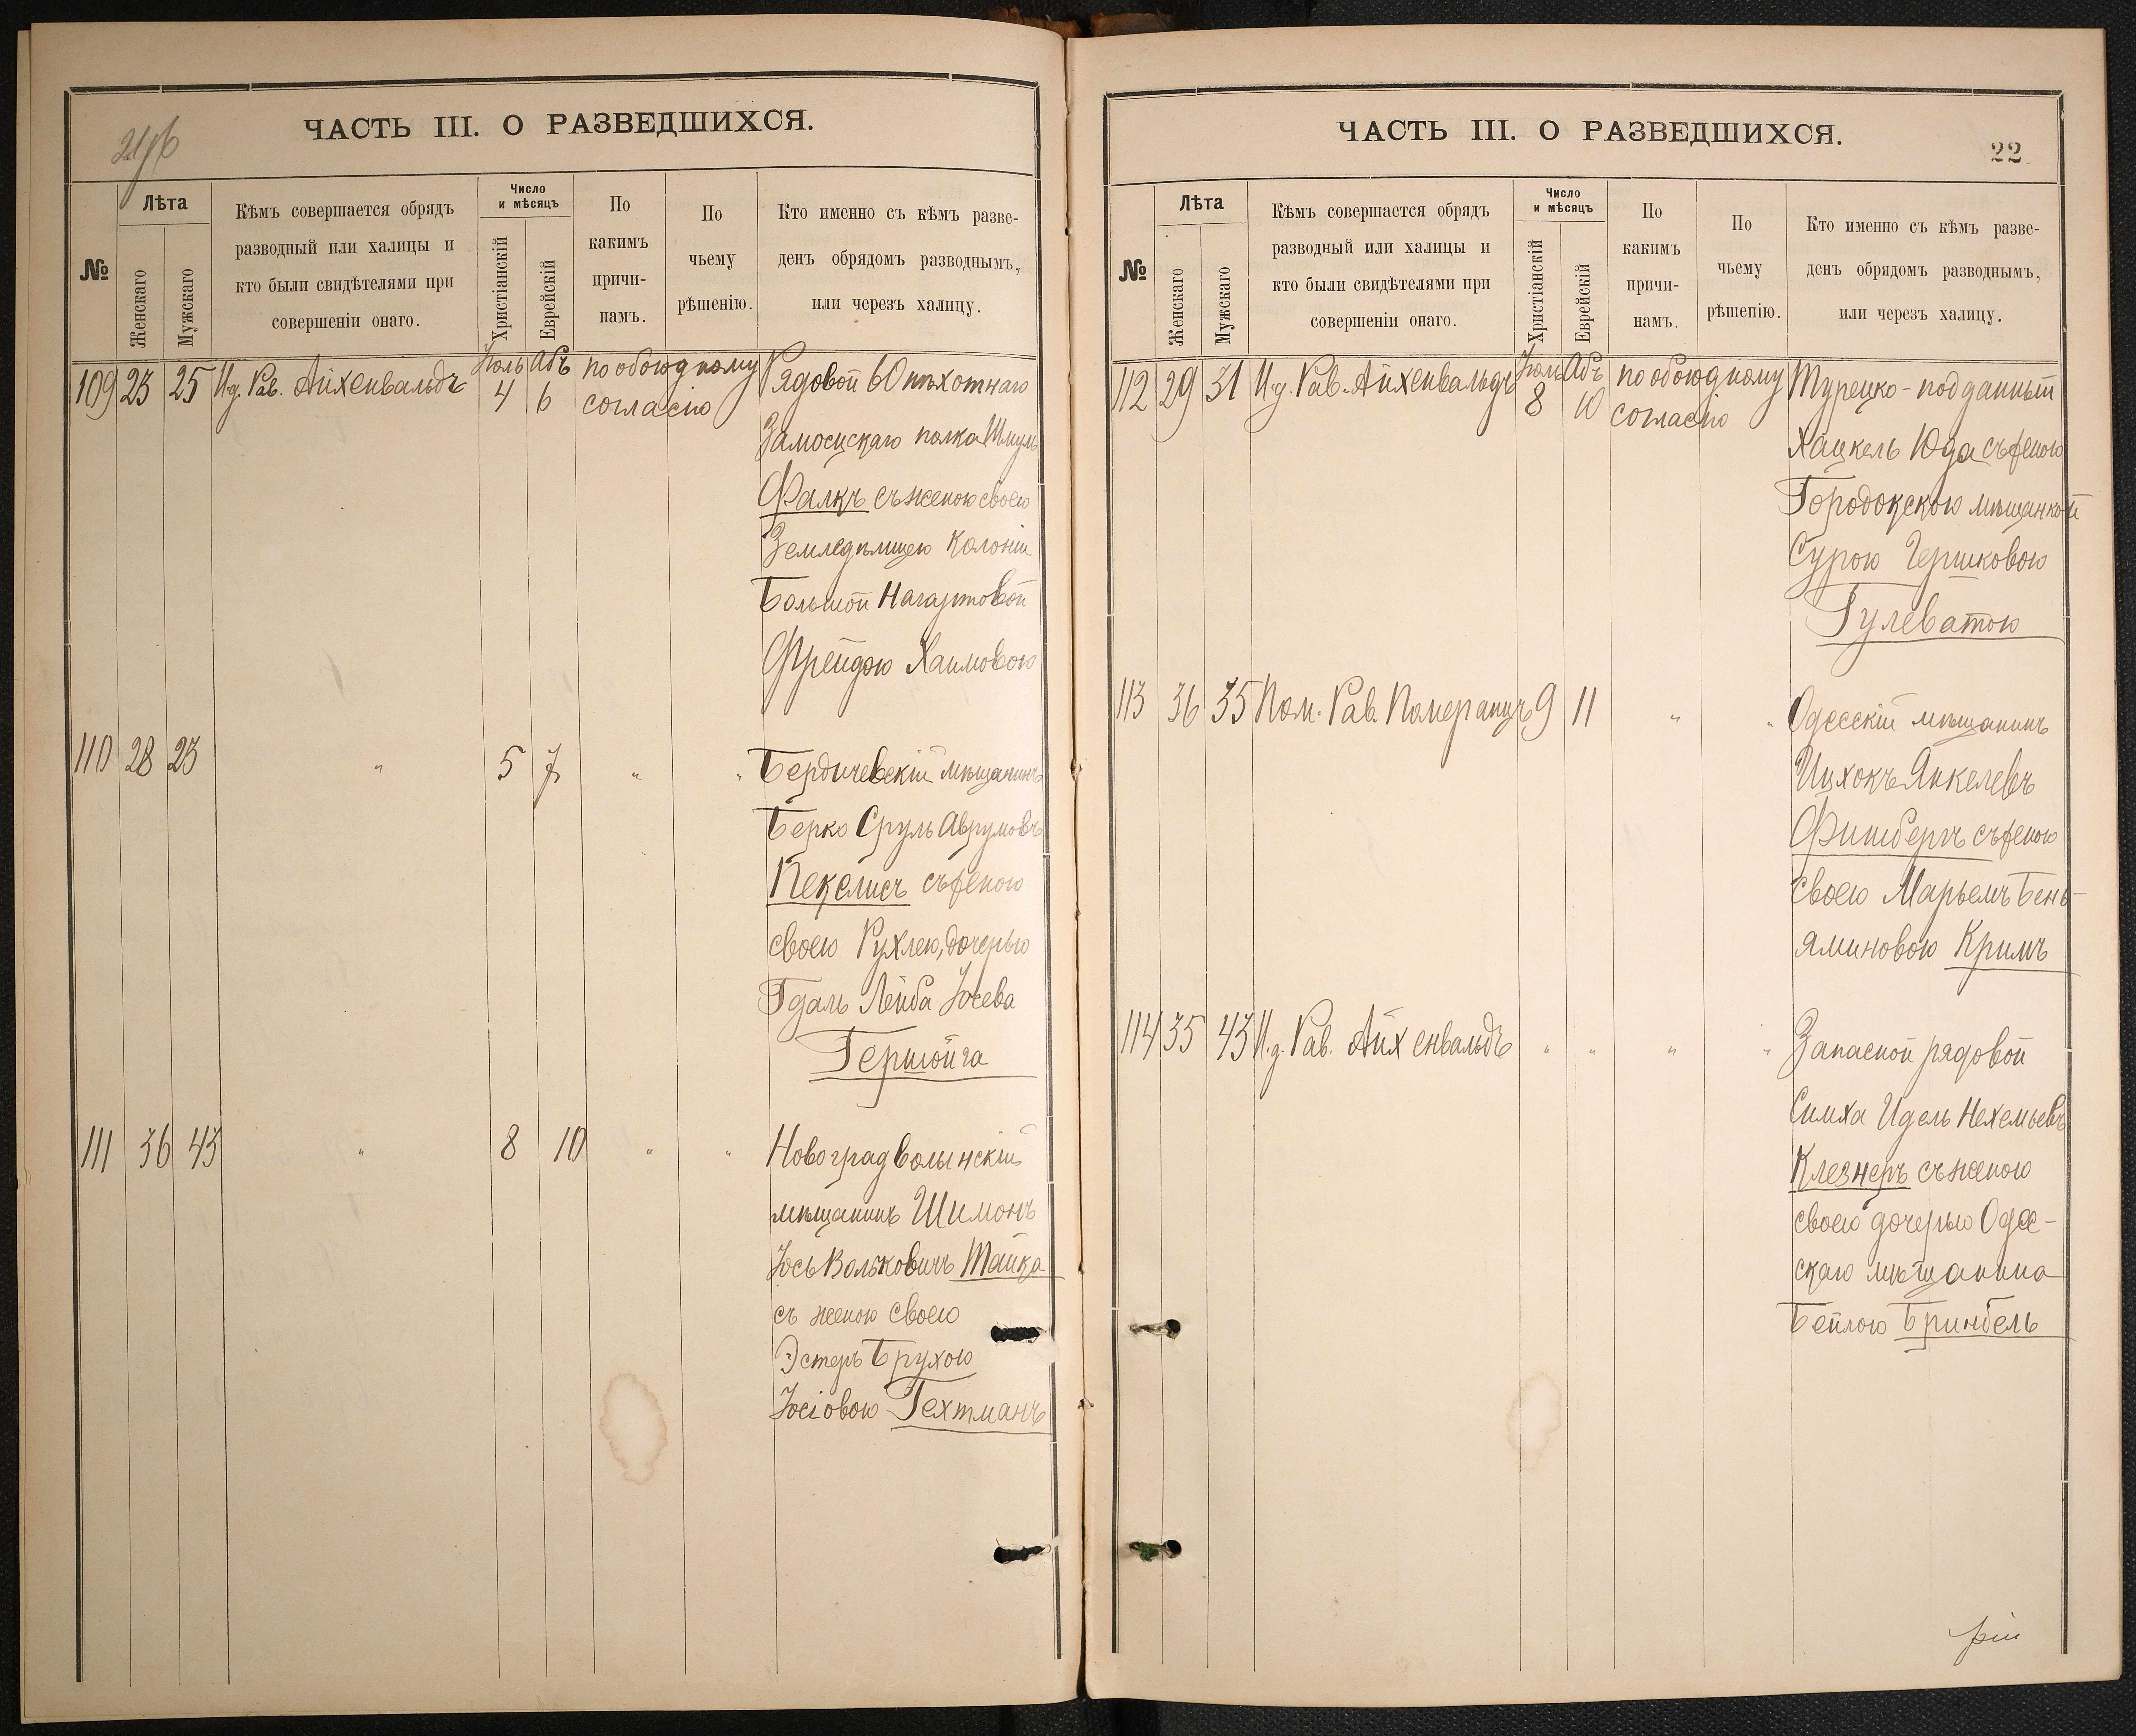 ЧАСТЬ III. О РАЗВЕДШИХСЯ.
№
Лѣта
Женскаго
Мужскаго
Кѣмъ совершается обрядъ
разводный или халицы и
кто были свидѣтелями при
совершеніи онаго.
Число
и мѣсяцъ
Христіанскій
Еврейскій
По
какимъ
причи-
намъ.
По
чьему
рѣшенію.
Кто именно съ кѣмъ разве-
денъ обрядомъ разводнымъ,
или черезъ халицу.
109 23 25 И.д. Рав. Айхенвальдъ Іюль 4 Абъ 6 по обоюдному
согласію
Рядовой 60 пѣхотнаго
Замосцскаго полка Шмуль
Фалкъ съ женою своею
Земледѣлицею Колоніи
Большой Нагартовой
Фрейдою Хаимовою
110 28 23 " 5 7 " "
Бердичевскій мѣщанинъ
Берко Сруль Аврумовъ
Пекелисъ съ женою
своею Рухлею, дочерью
Гдаль Лейба Іосева
Гершойга
111 36 43 " 8 10 " "
Новоградволынскій
мѣщанинъ Шимонъ
Іось Вольковичъ Тайка
съ женою своею
Эстеръ Брухою
Іосіовою Гехтманъ
ЧАСТЬ III. О РАЗВЕДШИХСЯ.
22
№
Лѣта
Женскаго
Мужскаго
Кѣмъ совершается обрядъ
разводный или халицы и
кто были свидѣтелями при
совершеніи онаго.
Число
и мѣсяцъ
Христіанскій
Еврейскій
По
какимъ
причи-
намъ.
По
чьему
рѣшенію.
Кто именно съ кѣмъ разве-
денъ обрядомъ разводнымъ,
или черезъ халицу.
112 29 31 И.д. Рав. Айхенвальдъ Іюль 8 Абъ 10 по обоюдному
согласію
Турецко-подданный
Хацкель Юда съ женою
Городокскою мѣщанкой
Сурою Гершковою
Гулеватою
113 36 35 Пом. Рав. Померанцъ 9 11 " "
Одесскій мѣщанинъ
Ицхокъ Янкелевъ
Финбергъ съ женою
своею Марьемъ Бень-
яминовою Кримъ
114 35 43 И.д. Рав. Айхенвальдъ " " " "
Запасной рядовой
Симха Идель Нехемьевъ
Клезнеръ съ женою
своею дочерью Одес-
скаго мѣщанина
Бейлою Бринбель